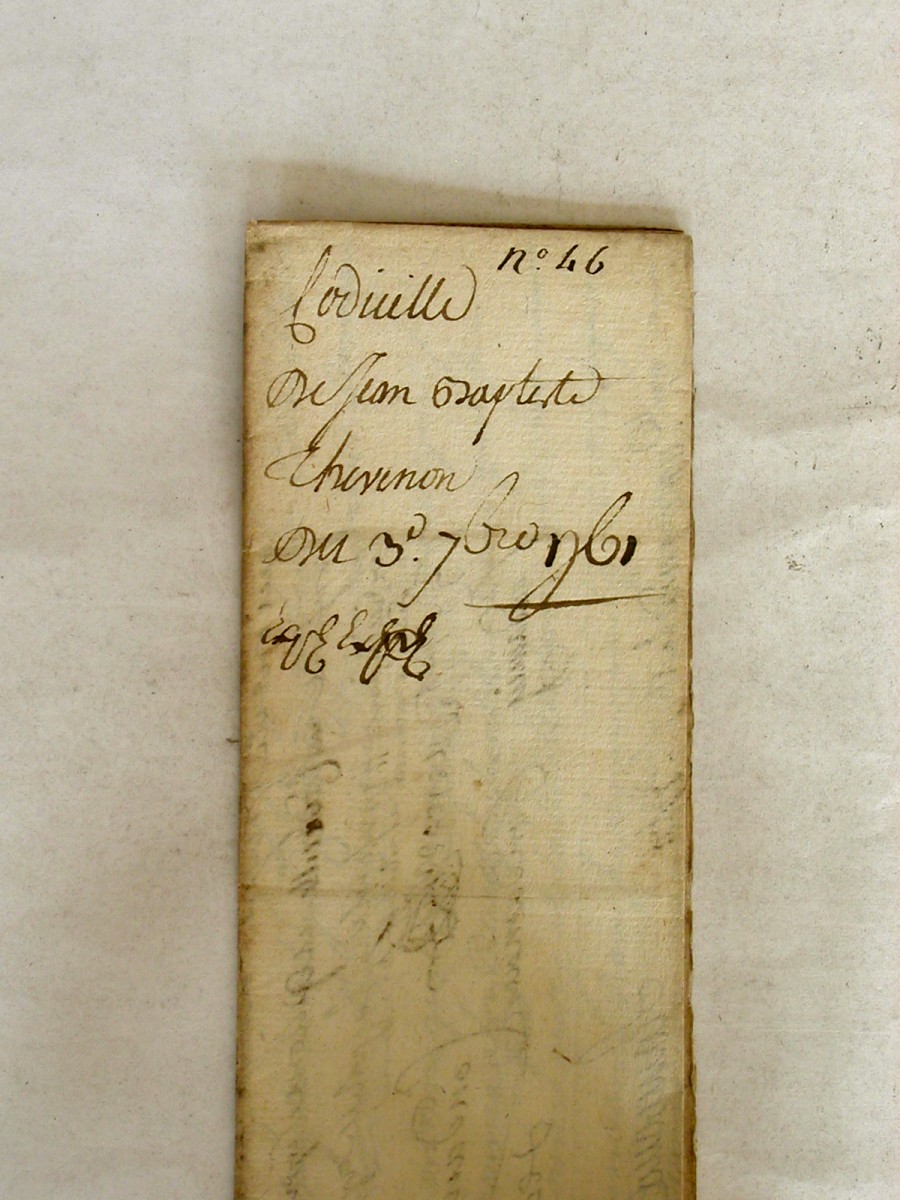 nº. 46
Codicille
De Jean Baptiste
Thevenon
Du 3ᵈ. 7bre 1761